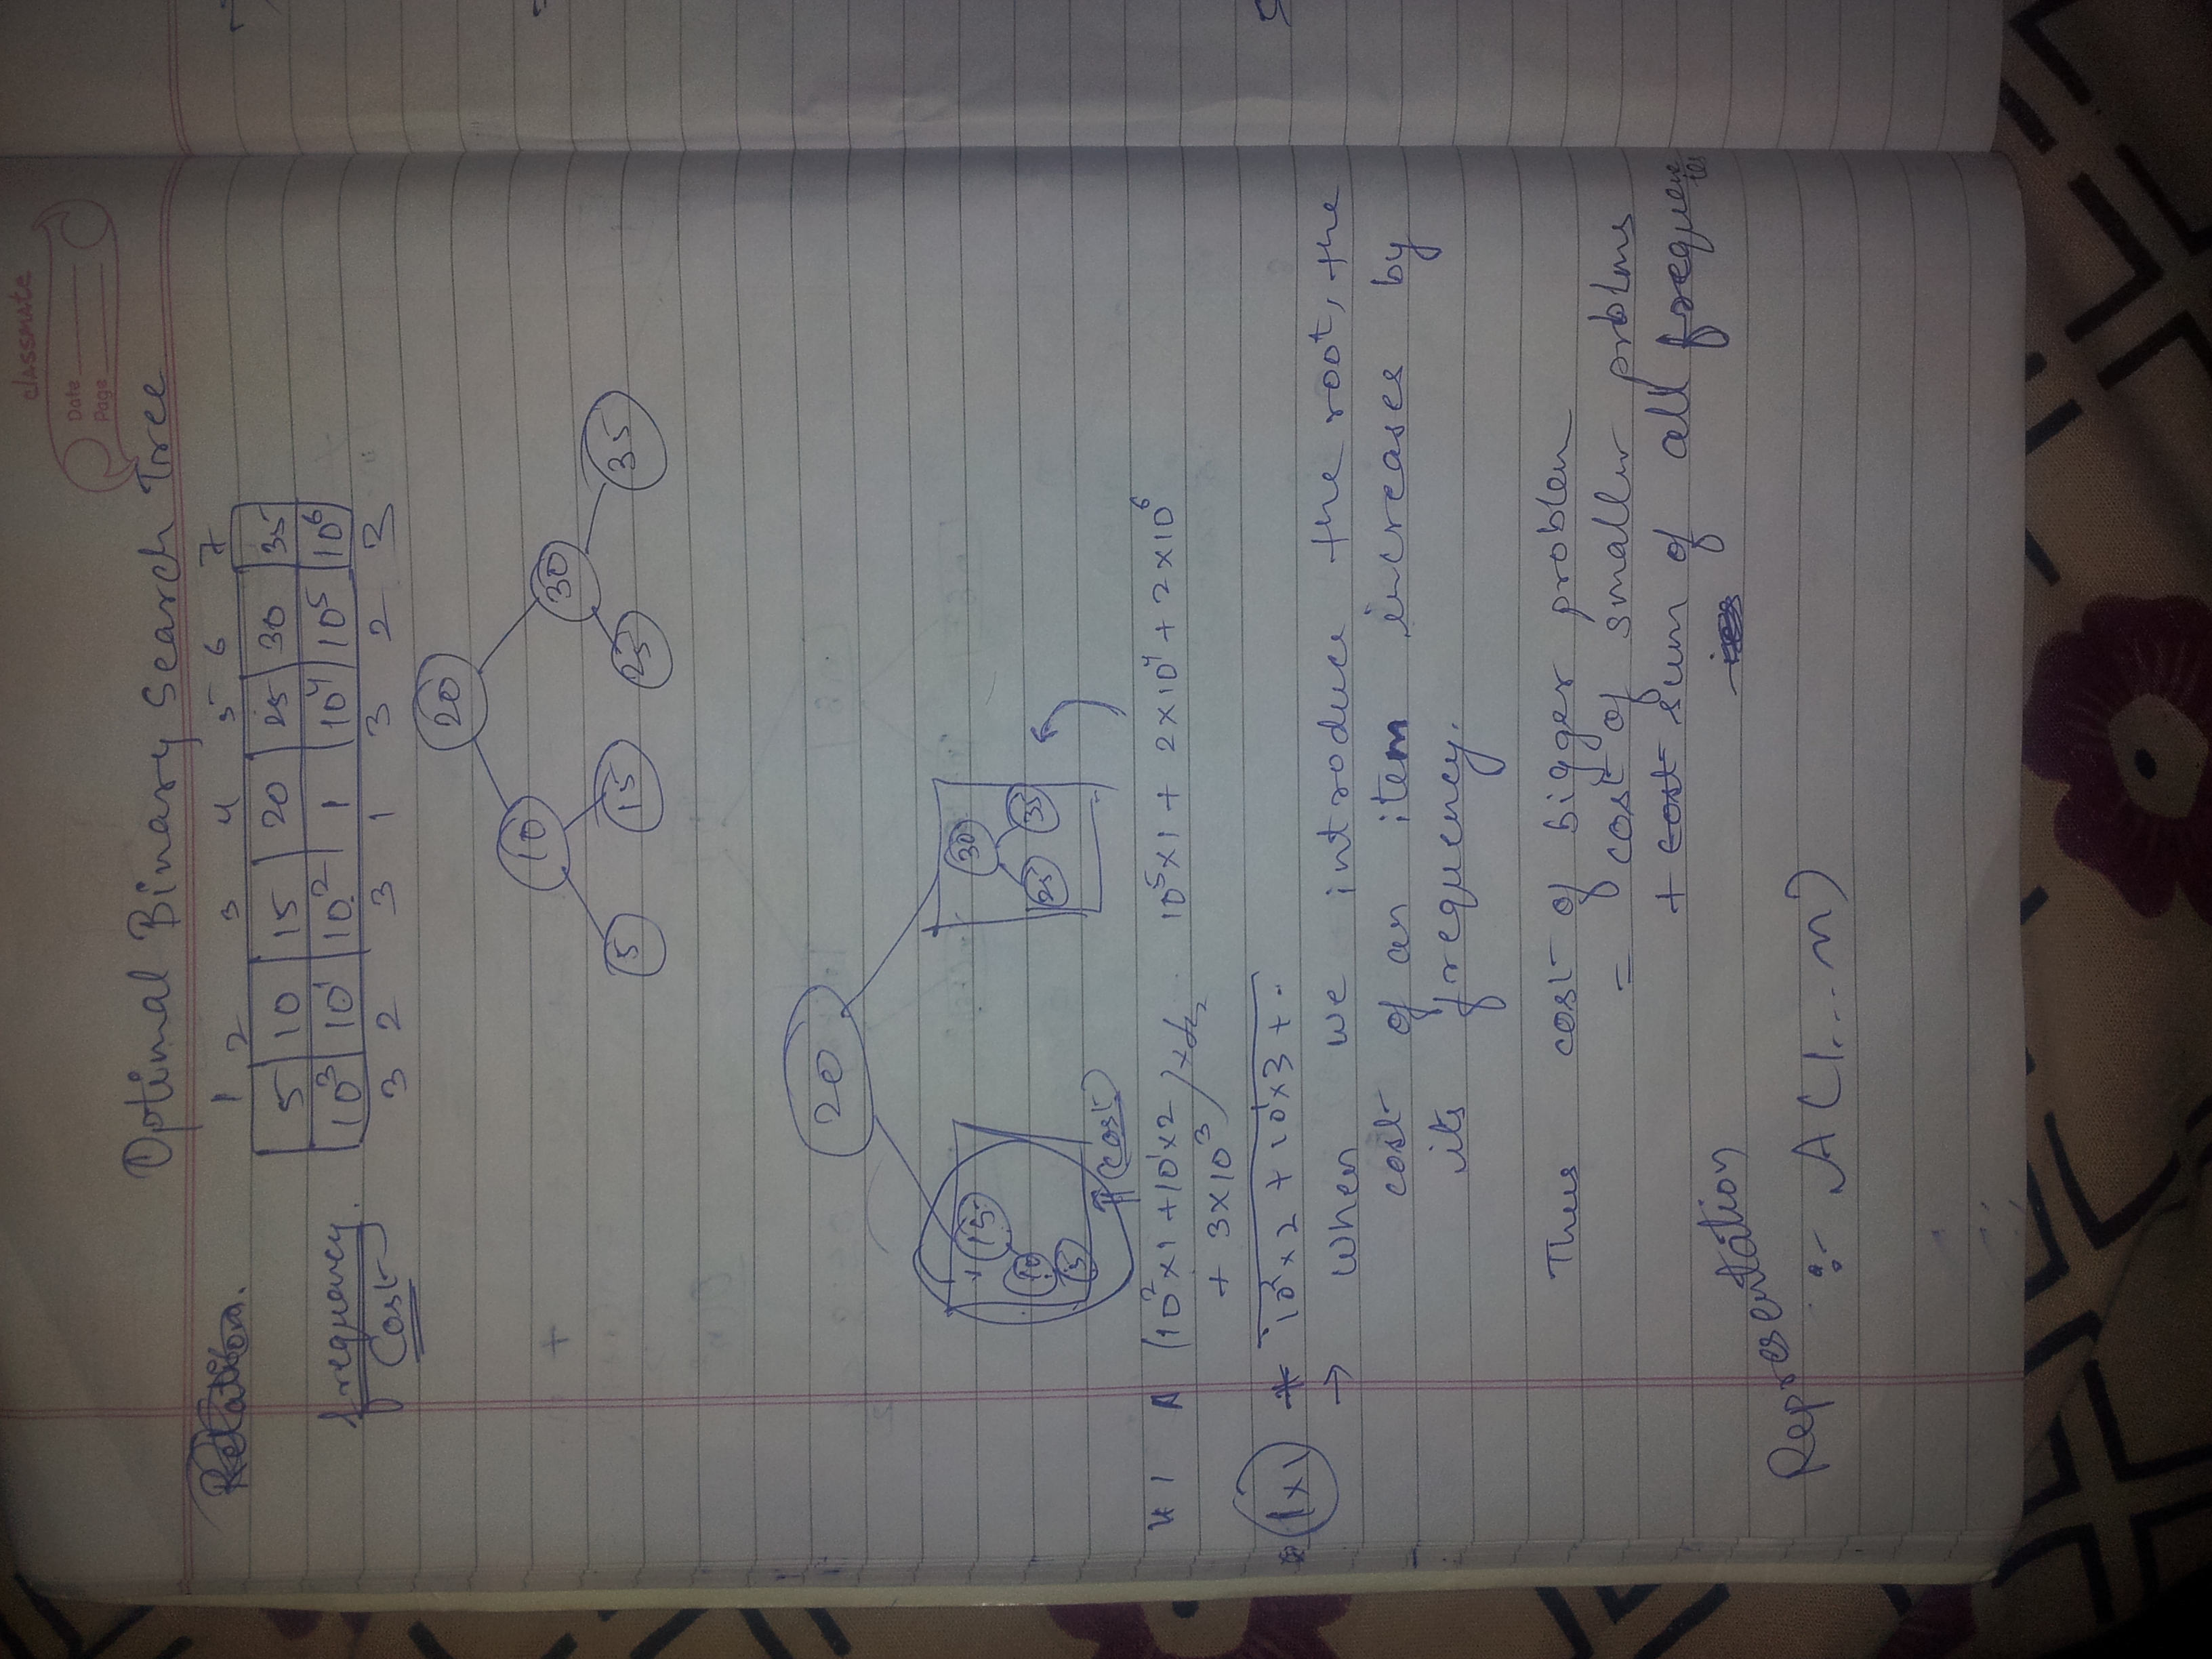 classmate
Date
Page
Optimal Binary Search Tree
1 2 3 4 5 6 7
5 10 15 20 25 30 35
frequency 10³ 10¹ 10² 1 10⁴ 10⁵ 10⁶
Cost 3 2 3 1 3 2 3
20
10 30
5 15 25 35
20
15 30
10 25 35
5
(cost)
(10² x 1 + 10¹ x 2 10⁵ x 1 + 2 x 10⁴ + 2 x 10⁶
+ 3 x 10³)
1 x 1 10² x 2 + 10¹ x 3 + ..
→ When we introduce the root, the
cost of an item increases by
its frequency.
Thus cost of bigger problem
= cost of smaller problms
+ cost sum of all frequencies
Representation
:- A(1...n)